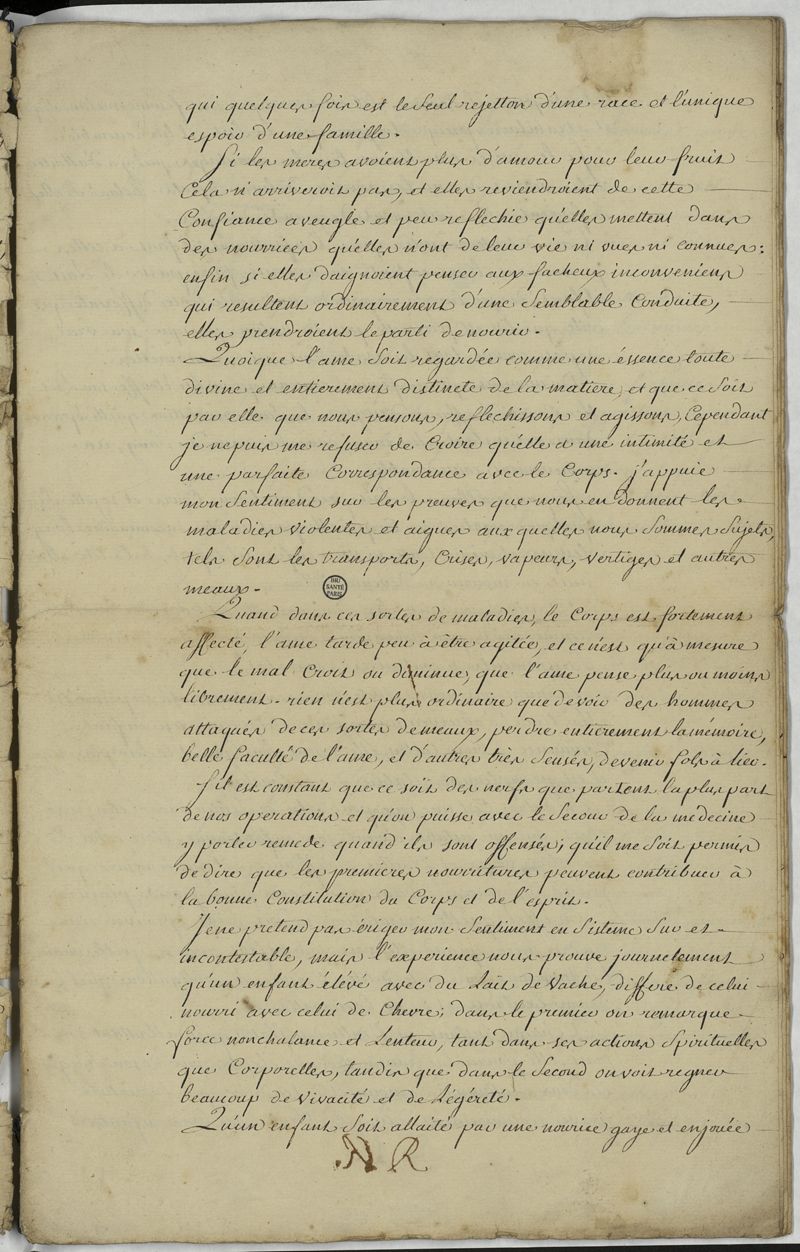 qui quelques fois est le seul rejetton d'une race et l'unique
espoir d'une famille.
Si les meres avoient plus d'amour pour leur fruit
Cela n'arriveroit pas, et elles reviendroient de cette
Confiance aveugle et peu reflechie qu'elles mettent dans
des nourrices qu'elles n'ont de leur vie ni vues ni connues;
enfin si elles daignoient penser aux facheux inconveniens
qui resultent ordinairement d'une Semblable Conduite,
elles prendroient le parti de nourir.
Quoique l'ame soit regardée comme une éssence toute
divine et entierement distincte de la matiere, et que ce soit
par elle que nous pensons, reflechissons et agissons, Cependant
je ne puis me refuser de Croire qu'elle a une intimité et
une parfaite Correspondance avec le Corps. j'appuie
mon Sentiment sur les preuves que nous en donnent les
maladies violentes et aigues aux quelles nous Sommes Sujets,
tels Sont les transports, Crises, vapeurs, vertiges et autres
meaux.
BIU
SANTÉ
PARIS
Quand dans ces sortes de maladies, le Corps est fortement
affecté, l'ame tarde peu à être agitée, et ce n'est qu'à mesure
que le mal Croit ou diminue, que l'ame pense plus ou moins
librement. rien n'est plus ordinaire que de voir des hommes
attaqués de ces sortes de meaux, perdre entierement la mémoire,
belle faculté de l'ame, et d'autres très Sensés, devenir fols à lier.
S'il est constant que ce soit des nerfs que partent la plus part
de nos operations et qu'on puisse avec le Secour de la medecine
y porter remede quand ils sont offensés; qu'il me Soit permis
de dire que les premieres nourritures peuvent contribuer à
la bonne Constitution du Corps et de l'esprit.
Je ne pretend pas ériger mon Sentiment en Sisteme Sur et
incontestable, mais l'experience nous prouve journelement
qu'un enfant élévé avec du Lait de Vache, differe de celui
nourri avec celui de Chevre; dans le premier on remarque
force nonchalance et Lenteur, tant dans ses actions Spirituelles
que Corporelles, tandis que dans le Second on voit regner
beaucoup de vivacité et de Légéreté.
Qu'un enfant Soit allaité par une nourice gaye et enjouée
N R